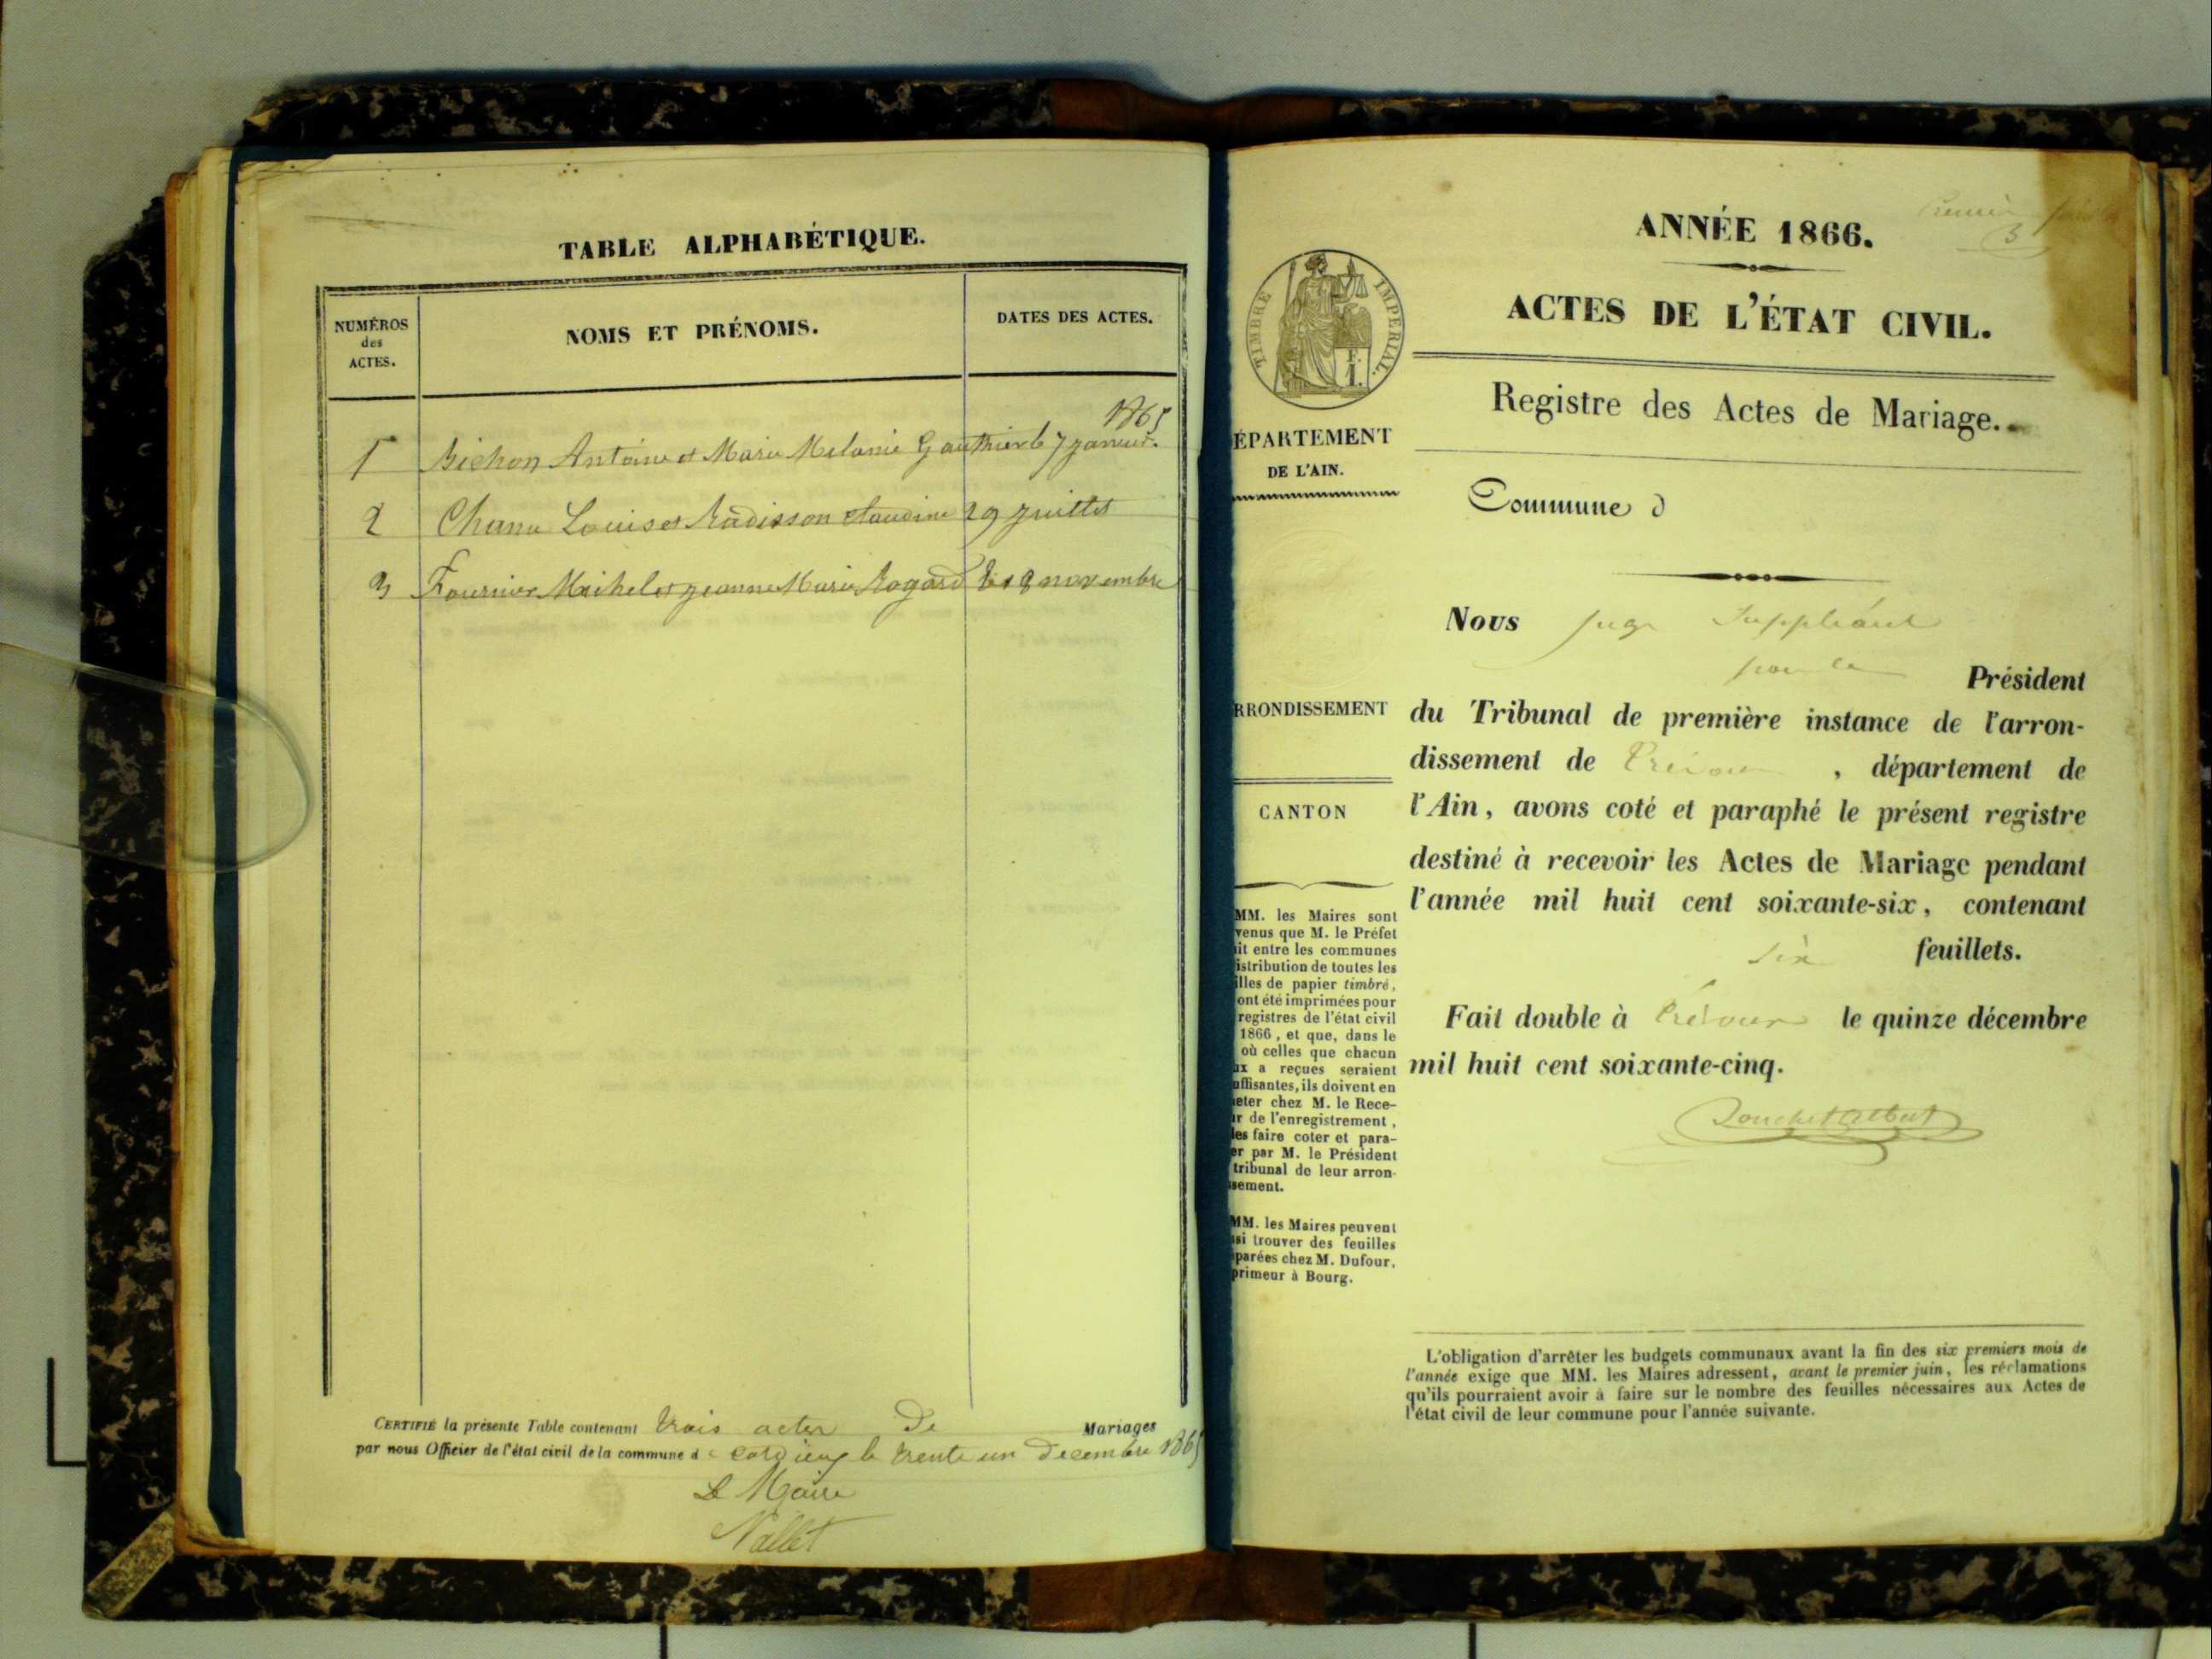 TABLE ALPHABÉTIQUE.
NUMÉROS
des
ACTES.
NOMS ET PRÉNOMS.
DATES DES ACTES.
1865
1 Bichon Antoine et Marie Melanie Gauthier le 7 janvier.
2 Chanu Louis et Radisson Claudine 29 juillet
3 Fournier Michel et jeanne Marie Rogard le 18 novembre
CERTIFIÉ la présente Table contenant trois actes De Mariages
par nous Officier de l'état civil de la commune d e Cordieux le trente un Decembre 1865
Le Maire
Nallet
ANNÉE 1866.
3
ACTES DE L'ÉTAT CIVIL.
TIMBRE IMPÉRIAL.
Registre des Actes de Mariage.
ÉPARTEMENT
DE L'AIN.
Commune d
Nous juge Suppléant
pour le Président
RRONDISSEMENT
du Tribunal de première instance de l'arron-
dissement de Trévoux, département de
CANTON
l'Ain, avons coté et paraphé le présent registre
destiné à recevoir les Actes de Mariage pendant
l'année mil huit cent soixante-six, contenant
six feuillets.
Fait double à Trévoux le quinze décembre
mil huit cent soixante-cinq.
MM. les Maires sont
venus que M. le Préfet
it entre les communes
istribution de toutes les
illes de papier timbré,
ont été imprimées pour
registres de l'état civil
1866, et que, dans le
où celles que chacun
ux a reçues seraient
uffisantes, ils doivent en
eter chez M. le Rece-
ur de l'enregistrement,
les faire coter et para-
er par M. le Président
tribunal de leur arron-
sement.
MM. les Maires peuvent
si trouver des feuilles
parées chez M. Dufour,
primeur à Bourg.
L'obligation d'arrêter les budgets communaux avant la fin des six premiers mois de
l'année exige que MM. les Maires adressent, avant le premier juin, les réclamations
qu'ils pourraient avoir à faire sur le nombre des feuilles nécessaires aux Actes de
l'état civil de leur commune pour l'année suivante.